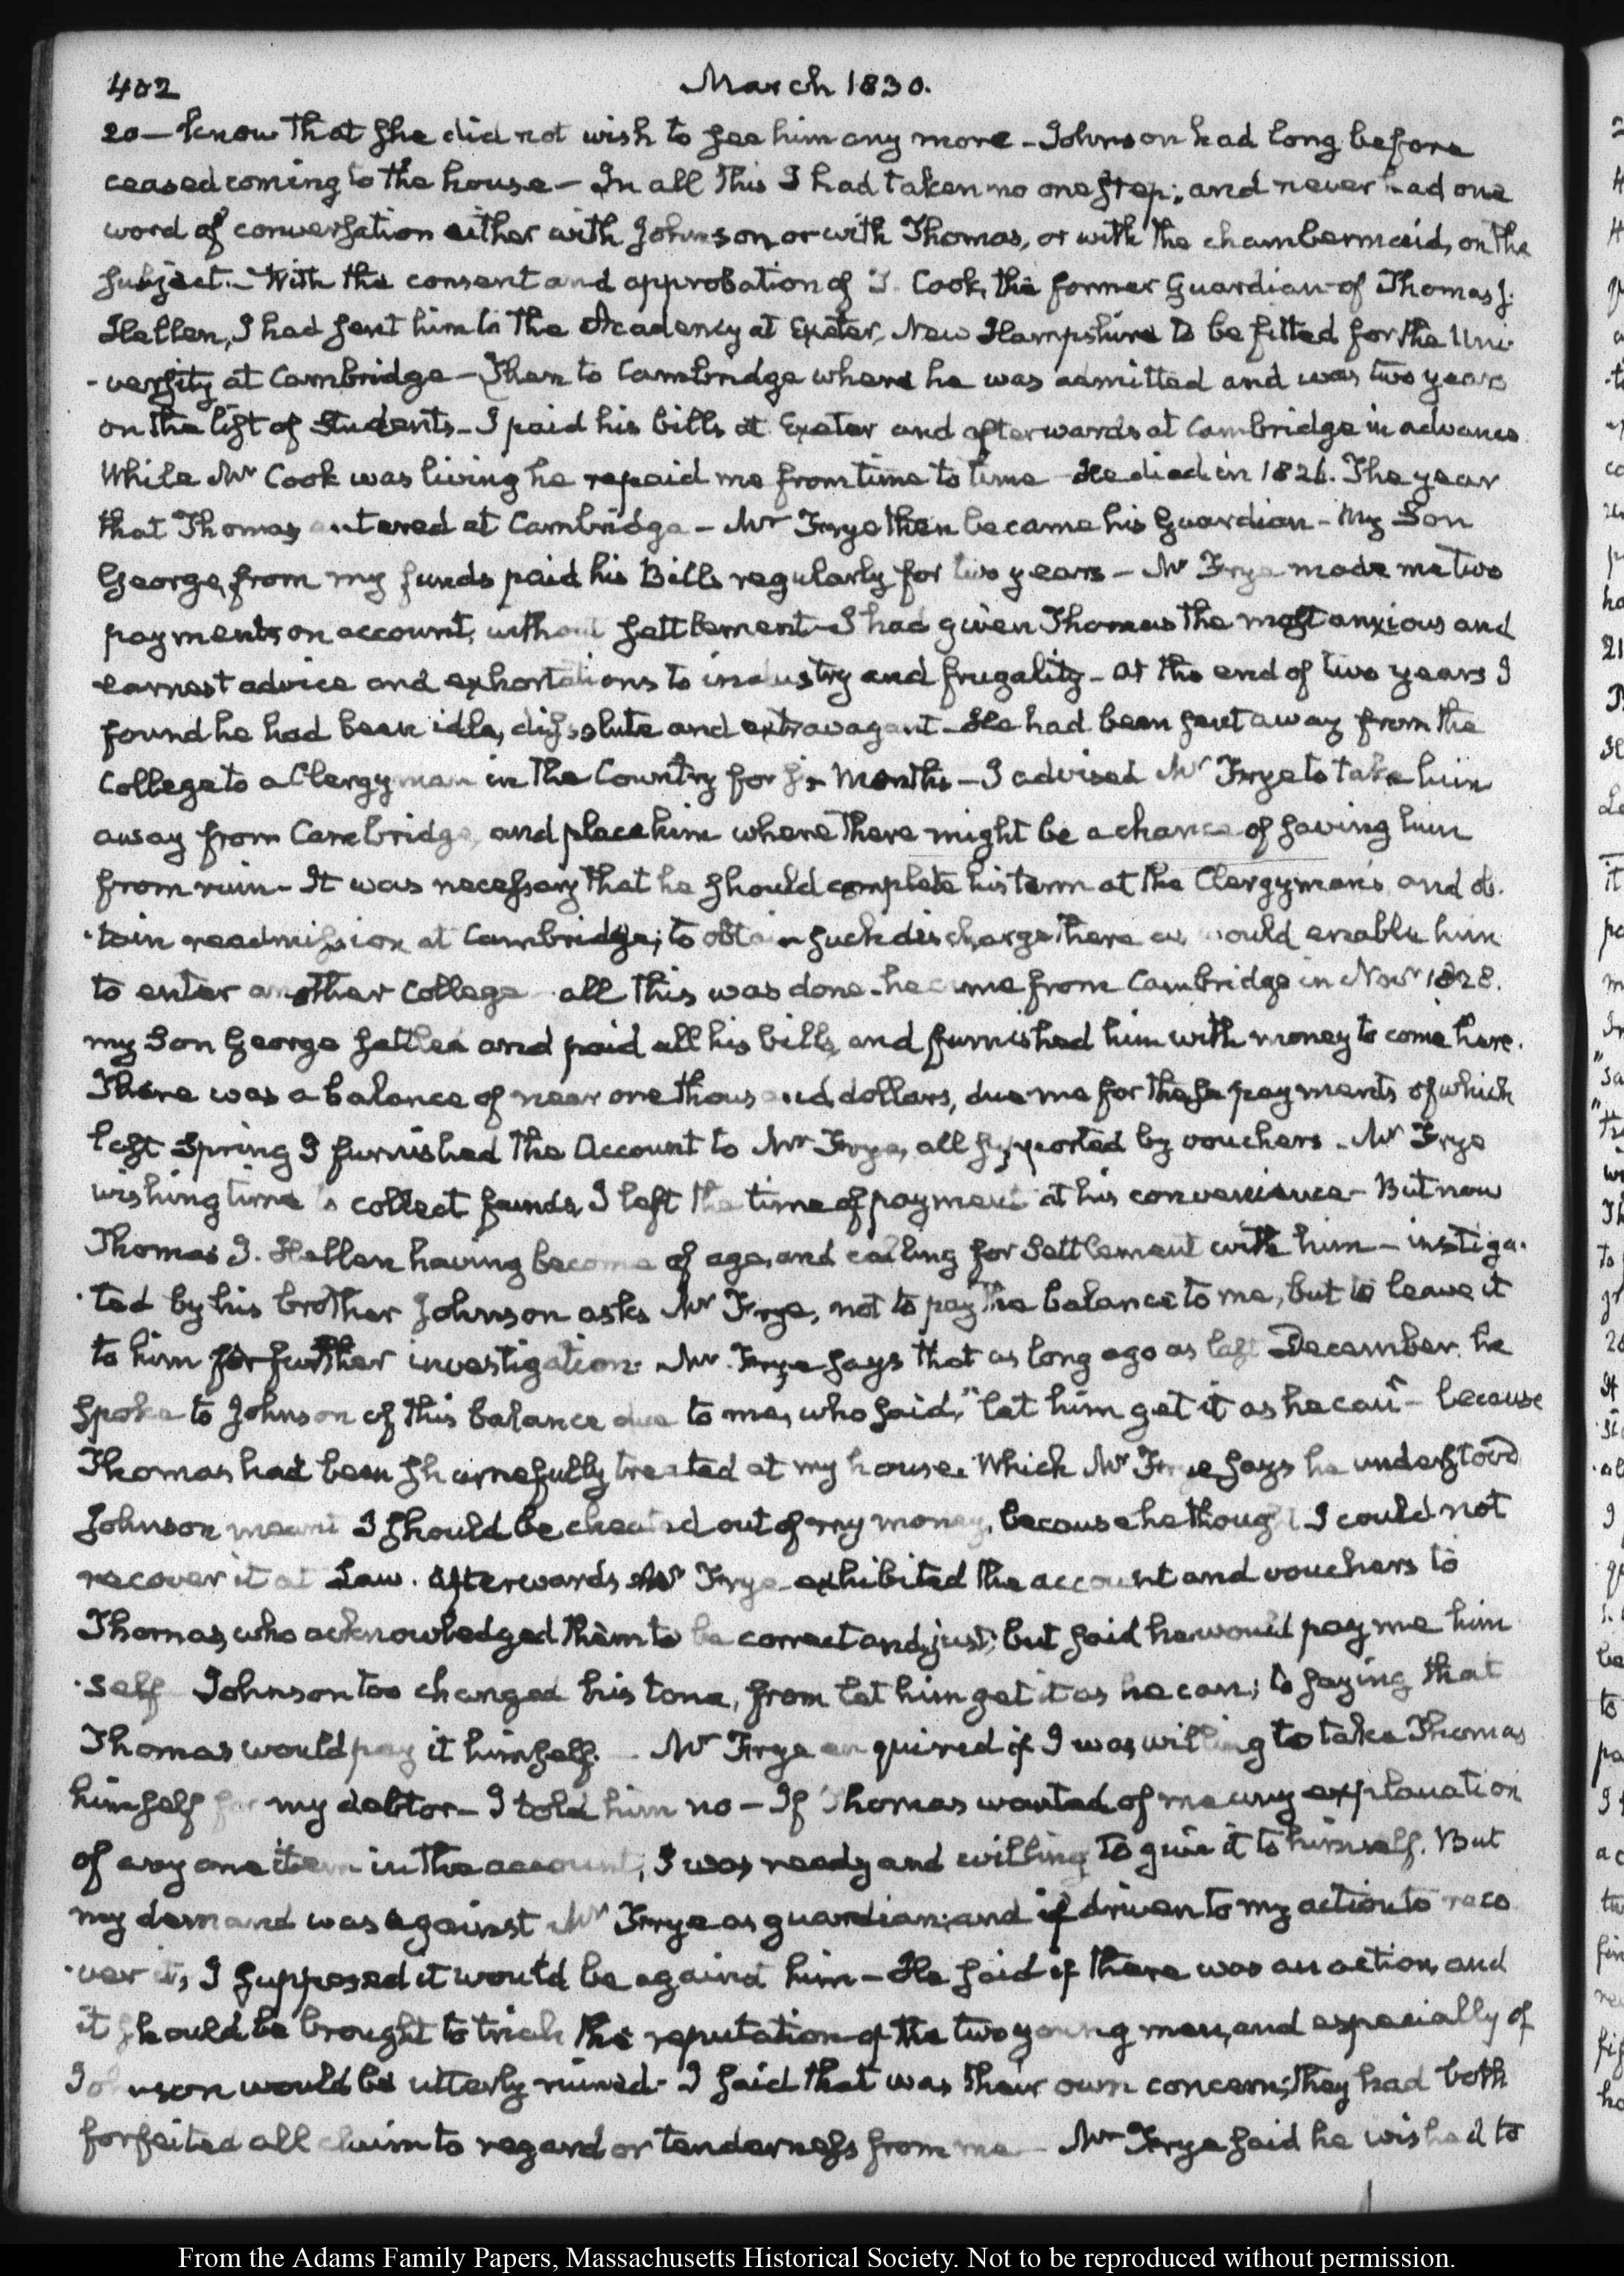 402 March 1830.
20 — know that she did not wish to see him any more - Johnson had long before
ceased coming to the house — In all this I had taken no one step; and never had one
word of conversation either with Johnson or with Thomas, or with the chambermaid, on the
subject. - With the consent and approbation of J. Cook, the former Guardian of Thomas J.
Hellen, I had sent him to the Academy at Exeter, New Hampshire to be fitted for the Uni-
-versity at Cambridge — Then to Cambridge where he was admitted and was two years
on the list of Students - I paid his bills at Exeter and afterwards at Cambridge in advance
While Mr Cook was living he repaid me from time to time He died in 1826. The year
that Thomas entered at Cambridge - Mr Frye then became his Guardian - My Son
George, from my funds paid his Bills regularly for two years - Mr Frye made me two
payments on account, without settlement - I had given Thomas the most anxious and
earnest advice and exhortations to industry and frugality - At the end of two years I
found he had been idle, dissolute and extravagant - He had been sent away from the
College to a Clergyman in the Country for six Months - I advised Mr Frye to take him
away from Cambridge, and place him where there might be a chance of saving him
from ruin - It was necessary that he should complete his term at the Clergyman's, and ob-
-tain readmission at Cambridge; to obtain such discharge there as would enable him
to enter another College all this was done - he came from Cambridge in Novr 1828.
my Son George settled and paid all his bills, and furnished him with money to come here.
There was a balance of near one thousand dollars, due me for these payments of which
last Spring I furnished the Account to Mr Frye, all supported by vouchers - Mr Frye
wishing time to collect funds, I left the time of payment at his convenience - But now
Thomas J. Hellen having become of age, and calling for Settlement with him - instiga-
-ted by his brother Johnson asks Mr Frye, not to pay the balance to me, but to leave it
to him for further investigation. Mr. Frye says that as long ago as last December he
spoke to Johnson of this balance due to me, who said, "let him get it as he can" - because
Thomas had been shamefully treated at my house. Which Mr Frye says he understood
Johnson meant I should be cheated out of my money, because he thought I could not
recover it at Law. Afterwards Mr Frye exhibited the account and vouchers to
Thomas, who acknowledged them to be correct and just; but said he would pay me him
-self Johnson too changed his tone, from let him get it as he can; to saying that
Thomas would pay it himself. - Mr Frye enquired if I was willing to take Thomas
himself for my debtor - I told him no - If Thomas wanted of me any explanation
of any one item in the account, I was ready and willing to give it to himself. But
my demand was against Mr Frye as guardian; and if driven to my action to reco
-ver it, I supposed it would be against him - He said if there was an action, and
it should be brought to trial the reputation of the two young men, and especially of
Johnson would be utterly ruined - I said that was their own concern; they had both
forfeited all claim to regard or tenderness from me - Mr Frye said he wished to
From the Adams Family Papers, Massachusetts Historical Society. Not to be reproduced without permission.